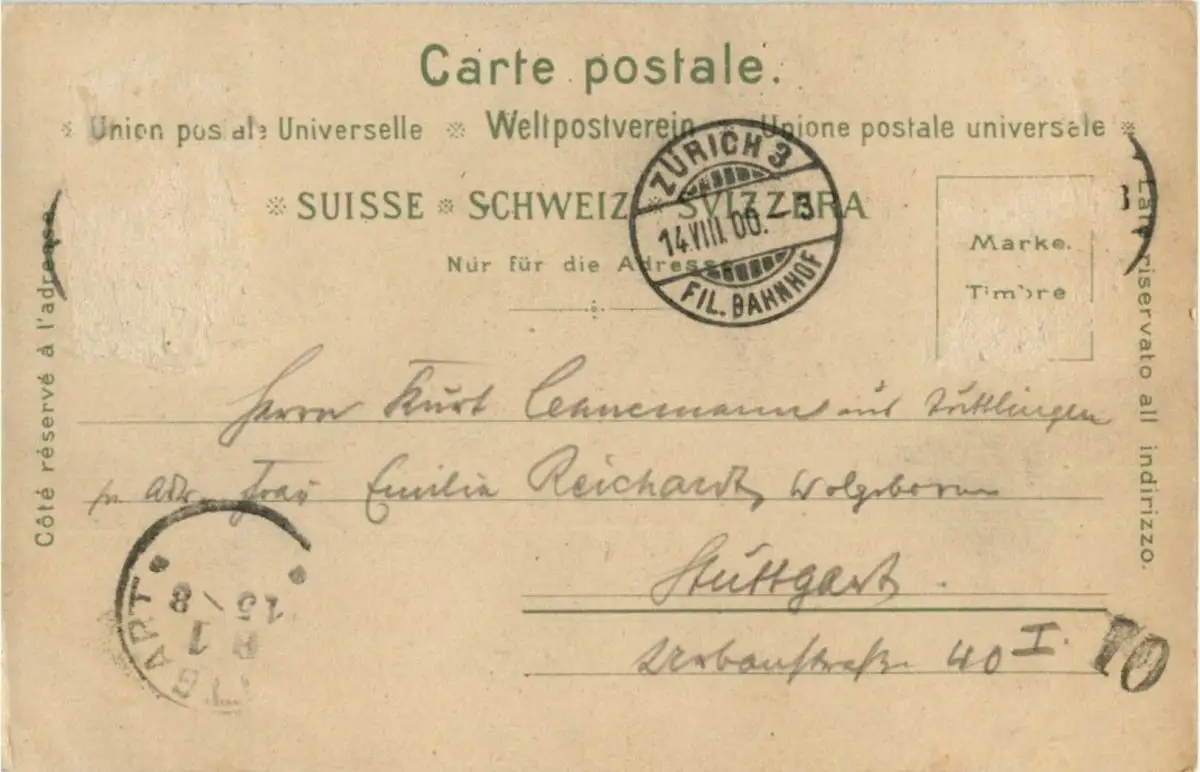 Carte postale.
Union postale Universelle Weltpostverein Unione postale universale
SUISSE SCHWEIZ SVIZZERA
Nur für die Adresse
Côté réservé à l'adresse
Lato riservato all indirizzo.
Marke.
Timbre
ZÜRICH 3
14.VIII.00.-3
FIL. BAHNHOF
Herrn Kurt aus Tuttlingen
Adr. Frau Emilie Reichardt, Wolgeboren
Stuttgart.
Urbanstraße 40 I.
GART
15/8
10